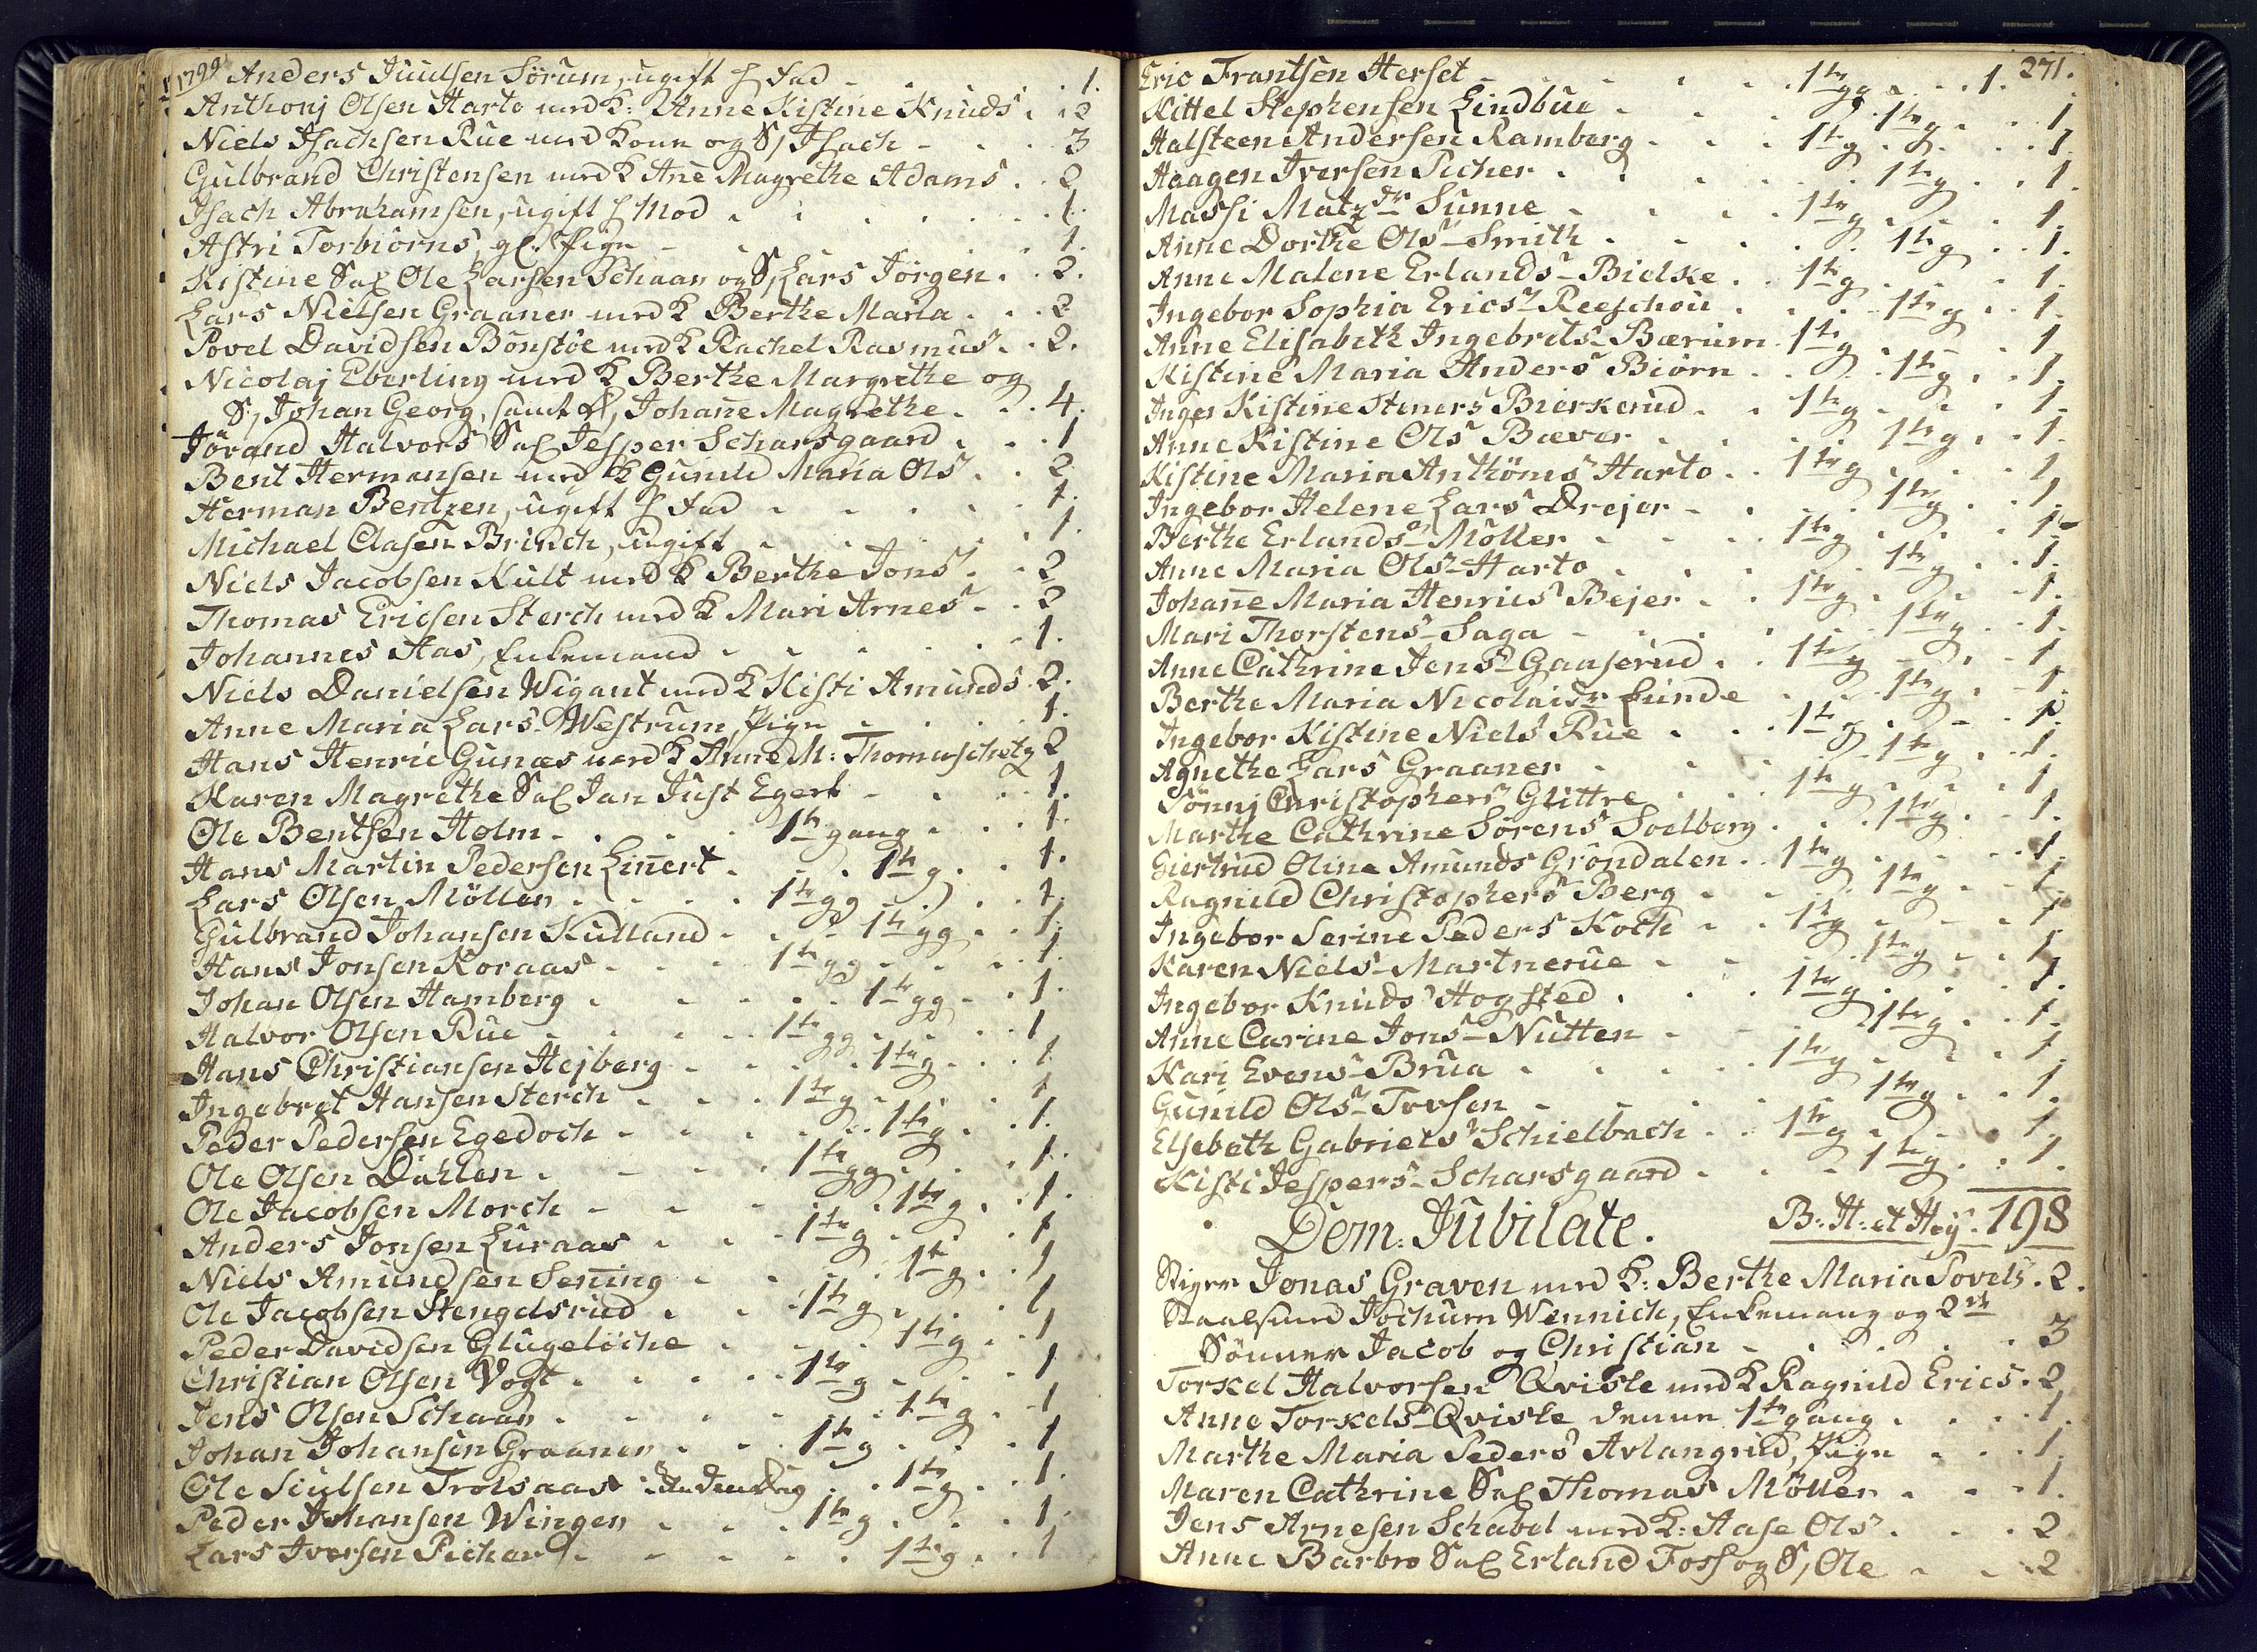 1799 Anders Juulsen Sörum, ugift
Anthonj Olsen Harto med K: Anne Kistine Knuds . 2
Niels Isachsen Rue med Kone og S, Isach - . . 3
Gulbrand Christensen med K Añe Magrethe Adams . . 2
Isach Abrahamsen, ugift
Astri Torbiörns, gl. Pige - . . . 1.
Kistine Sal Ole Larsen Schaar og S, Lars Jörgen . . 2.
Lars Nielsen Graaner med K Berthe Maria . . . 2
Povel Davidsen Bönstöe med K Rachel Rasmus . . 2.
Nicolaj Eberling med K Berthe Margrethe og
S, Johan Georg, samt D, Johañe Magrethe . . . 4.
Jörand Halvors Sal Jesper Scharsgaard . . . 1
Bent Hermansen med K Gunild Maria Ols . . 2
Herman Bentzen, ugift . . . 1.
Michael Clasen Brinch, ugift . . . 1.
Niels Jacobsen Kult med K Berthe Jons . . 2
Thomas Ericsen Sterch med K Mari Arnes - . . 2
Johannes Aas, Enkemand . . . 1.
Niels Danielsen Wigant med K Kisti Amunds . 2.
Anne Maria Lars Westrum, Pige . . . 1.
Hans Henric Gunæs med K Anne M: Thomuschetz 2
Karen Magrethe Sal Jan Just Egert - . . . 1.
Ole Bentsen Holm - . . . 1te gang . . . 1.
Hans Martin Pedersen Liñert . . . 1te g . . . 1.
Lars Olsen Möller . . . 1te gg . . . 1.
Gulbrand Johansen Kulland . . . 1te gg . . 1.
Hans Jonsen Koraas . . . 1te gg . . . 1.
Johan Olsen Hamberg . . . 1te gg . . 1.
Halvor Olsen Rue . . . 1te gg . . . 1
Hans Christiansen Hejberg . . . 1te g . . . 1.
Ingebret Hansen Sterch . . . 1te g . . . 1
Peder Pedersen Egedoch . . . 1te g . . . 1.
Ole Olsen Dahlen . . . 1te gg . . . 1.
Ole Jacobsen Morch - . . . 1te g . . . 1.
Anders Jonsen Luraas . . . 1te g . . . 1
Niels Amundsen Señing . . . 1te g . . . 1
Ole Jacobsen Stengelsrud . . . 1te g . . . 1
Peder Davidsen Glugelöche . . . 1te g . . . 1
Christian Olsen Vogt . . . 1te g . . . 1
Jens Olsen Schaar . . . 1te g . . . 1
Johan Johansen Graaner . . . 1te g . . . 1
Ole Siulsen Trolsaas . . 1te g . . . 1.
Peder Johansen Winger . . . 1te g . . . 1
Lars Iversen Picher . . . 1te g . . 1
271.
Eric Frantsen Herset . . . 1te gg . . . 1.
Kittel Stephensen Lindbue . . . 1te g . . . 1
Halsteen Andersen Ramberg . . . 1te g . . . 1.
Haagen Iversen Picher . . . 1te g . . . 1.
Massi Matz dr Sunne . . . 1te g . . . 1.
Anne Dorthe Ols Smith . . . 1te g . . . 1.
Anne Malene Erlands Bielke . . 1te g . . . 1.
Ingebor Sophia Erics Reefschou . . . 1te g . . . 1.
Anne Elisabeth Ingebrets Bærum 1te g . . . 1
Kistine Maria Anders Biörn . . . 1te g . . . 1.
Inger Kistine Steners Bierkerud . . 1te g . . . 1.
Anne Kistine Ols Bæver . . . 1te g . . . 1.
Kistine Maria Anthönis Harto . . 1te g . . . 1
Ingebor Helene Lars Drejer - . . . 1te g . . . 1.
Berthe Erlands Möller . . . 1te g . . . 1.
Anne Maria Ols Harto . . . 1te g . . . 1.
Johañe Maria Henrics Bejer . . 1te g . . . 1.
Mari Thorstens Saga - . . . 1te g . . . 1.
Anne Cathrine Jens Gaaserud . . 1te g . . . 1
Berthe Maria Nicolai dr Lunde . . . 1te g . . . 1.
Ingebor Kistine Niels Rue . . . 1te g . . . 1.
Agnethe Lars Graaner . . . 1te g . . . 1.
Tönnj Christophers Glittre . . . 1te g . . . 1
Marthe Cathrine Sörens Soelberg . . . 1te g . . . 1.
Giertrud Oline Amunds Gröndalen . . 1te g . . . 1.
Ragnild Christophers Berg . . . 1te g . . . 1.
Ingebor Serine Peders Koch . . 1te g . . . 1
Karen Niels Martnerue . . . 1te g . . . 1
Ingebor Knuds Hogsted . . . 1te g . . . 1.
Anne Carine Jons Nutten . . . 1te g . . . 1.
Kari Evens Brua . . . 1te g . . . 1.
Gunild Ols Trosen . . . 1te g . . . 1.
Elsebeth Gabriels Schielbech . . 1te g . . . 1.
Kisti Jespers Scharsgaard . . . 1te g . . . 1.
Dom: Jubilate. B: H: et Hoj. 198
Stiger Jonas Graven med K: Berthe Maria Povels . 2.
Staalsmed Jochum Wennich, Enkemand og 2de
Sönner Jacob og Christian . . . 3
Torkel Halvorsen Qvisle med K Ragnild Erics . 2
Anne Torkels Qvisle denne 1te gang . . . 1.
Marthe Maria Peders Avlangrud, Pige . . . 1.
Maren Cathrine Sal Thomas Möller . . . 1.
Jens Arnesen Schabel med K: Aase Ols . . . 2
Anne Barbro Sal Erland Foss og S, Ole . . . 2